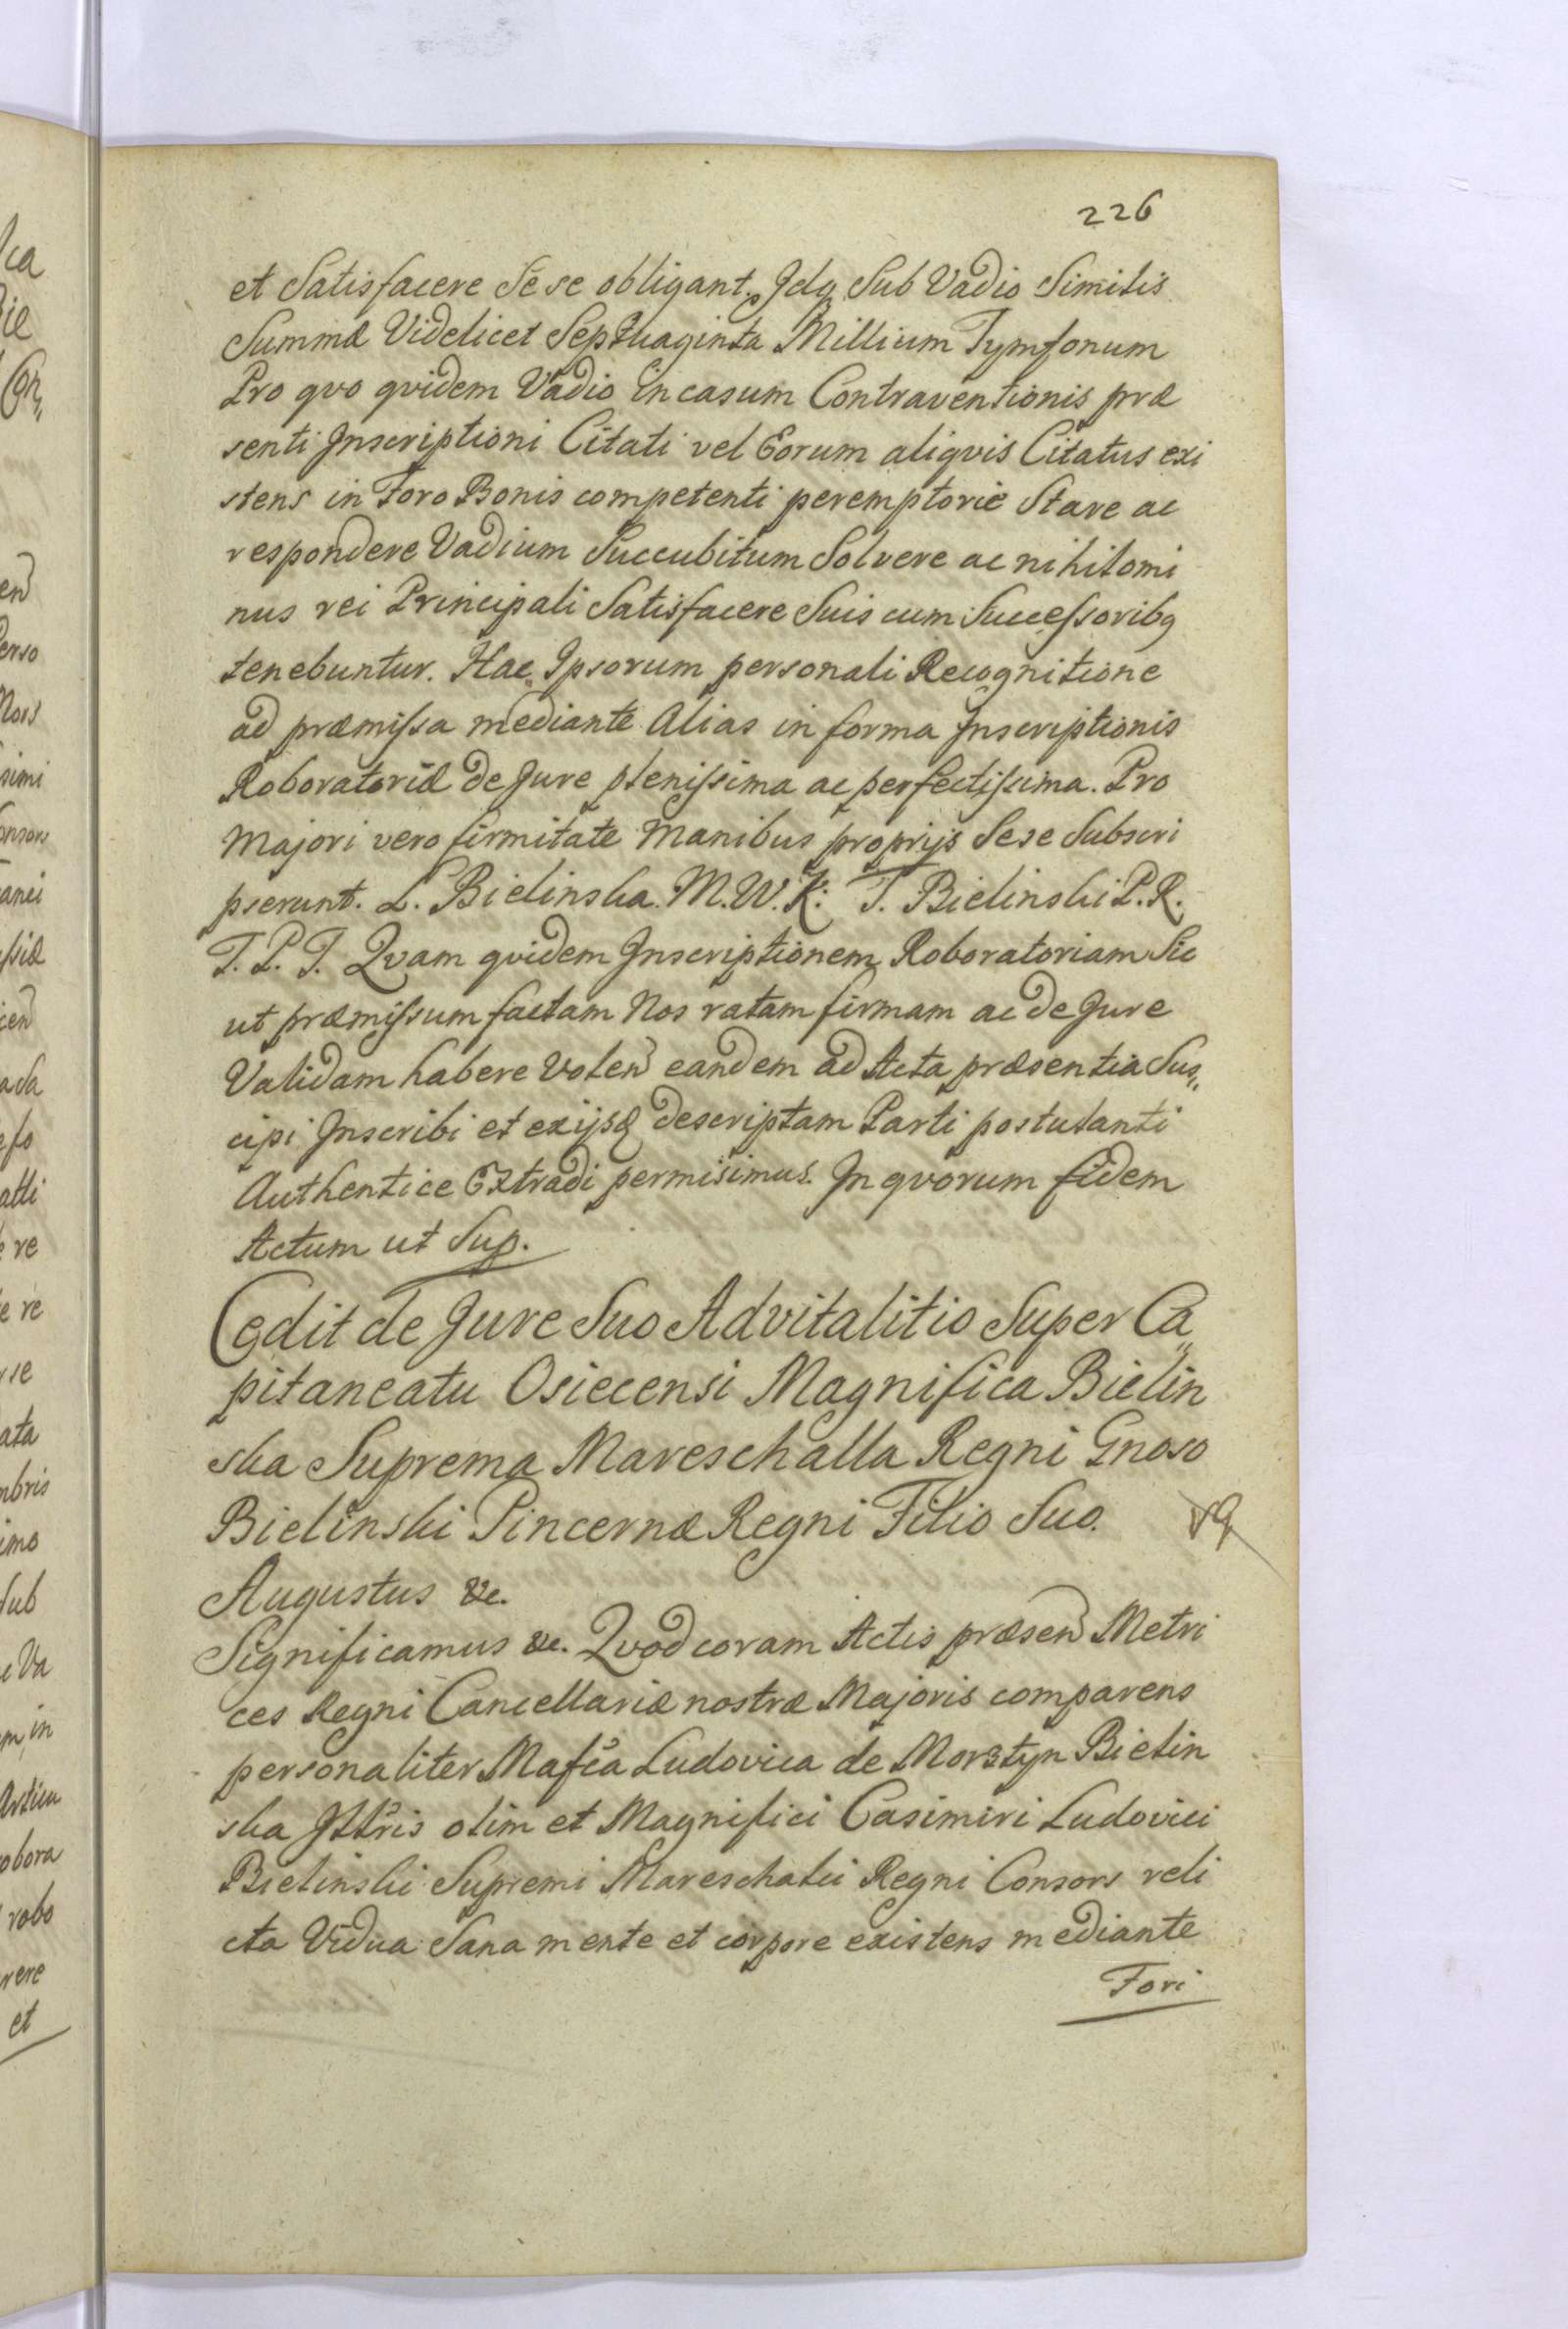 226
et Satisfacere Sese obligant. Idq Sub Vadio Similis
Summæ Videlicet Septuaginta Millium Tymfonum
Pro qvo qvidem Vadio in casum Contraventionis præ
senti Inscriptioni Citati vel Eorum aliqvis Citatus exi
stens in Foro Bonis competenti peremptorie Stare ac
respondere Vadium Succubitum Solvere ac nihilomi
nus rei Principali Satisfacere Suis cum Successoribq
tenebuntur. Hac Ipsorum personali Recognitione
ad præmissa mediante Alias in forma Inscriptionis
Roboratoriæ de Jure plenissima ac perfectissima. Pro
Majori vero firmitate Manibus proprijs Sese Subscri
pserunt. L. Bielinska. M.W.K: T. Bielinski P.R.
T.P.T. Qvam qvidem Inscriptionem Roboratoriam Sic
ut præmissum factam Nos ratam firmam ac de Jure
Validam habere Volen eandem ad Acta præsentia Sus„
cipi Inscribi et exijsq descriptam Parti postulanti
Authentice Extradi permisimus. In qvorum fidem
Actum ut Sup.
Cedit de Jure Suo Advitalitio Super Ca„
pitaneatu Osiecensi Magnifica Bielin
ska Suprema Mareschalla Regni Gnoso
Bielinski Pincernæ Regni Filio Suo.
Augustus &c.
Significamus &c. Qvod coram Actis præsen Metri
ces Regni Cancellariæ nostræ Majoris comparens
personaliter Mafca Ludovica de Morstyn Bielin
ska Illris olim et Magnifici Casimiri Ludovici
Bielinski Supremi Mareschalci Regni Consors reli
cta Vidua Sana mente et corpore existens mediante
Fori